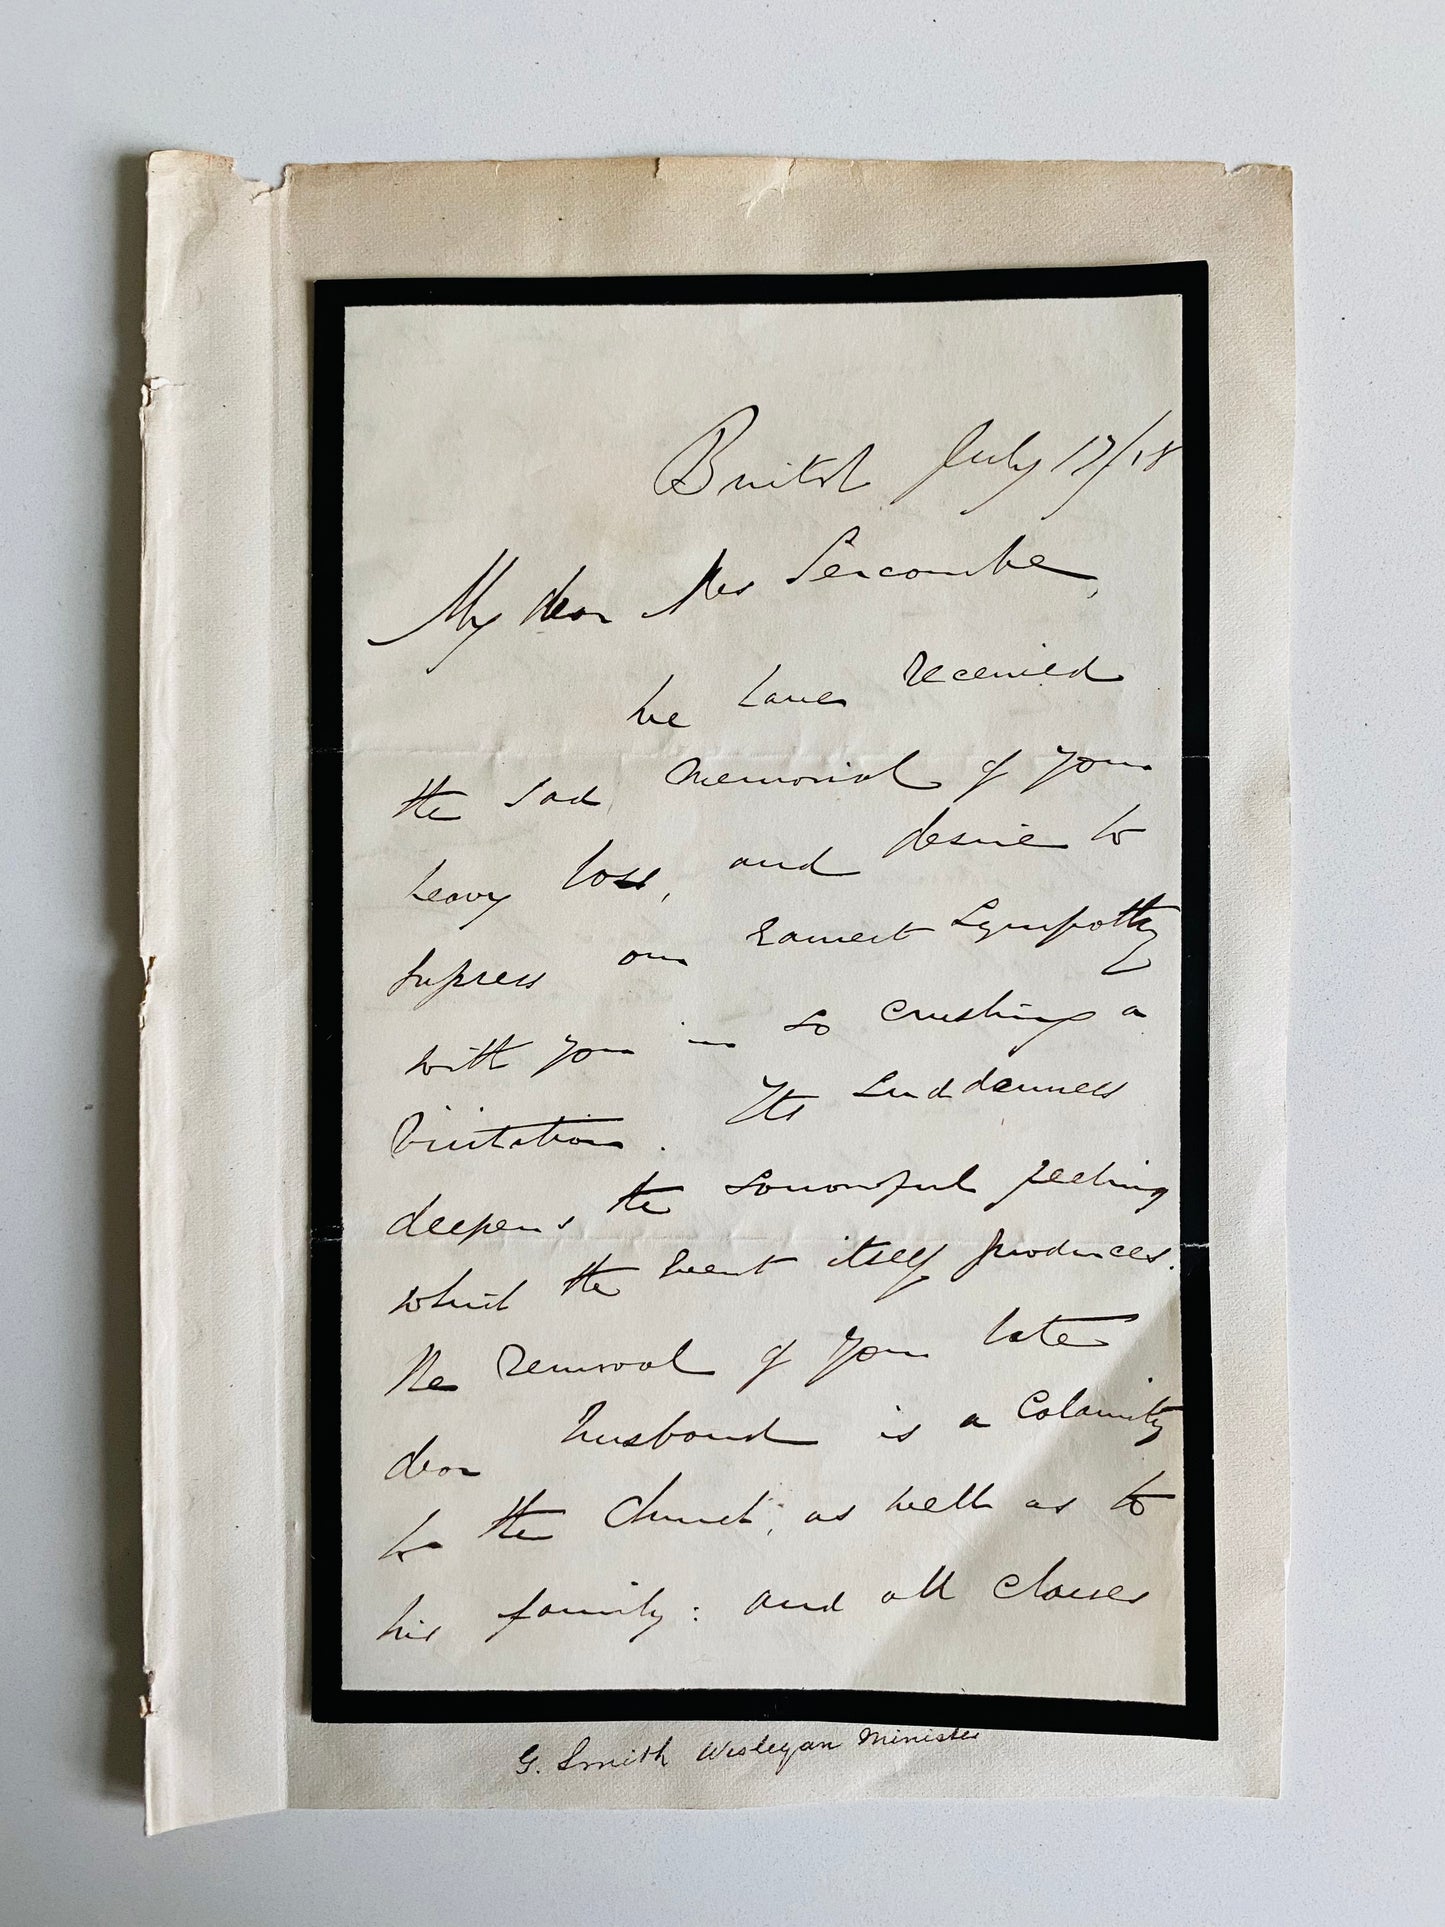 Bristol July 17/18
My dear Mrs Sercombe,
We have received
the sad memorial of your
heavy loss, and desire to
express our earnest sympathy
with you in so crushing a
visitation. Its suddenness
deepens the sorrowful feeling
which the event itself produces.
The removal of your late
dear husband is a calamity
to the Church, as well as to
his family: and all classes
G. Smith Wesleyan Minister